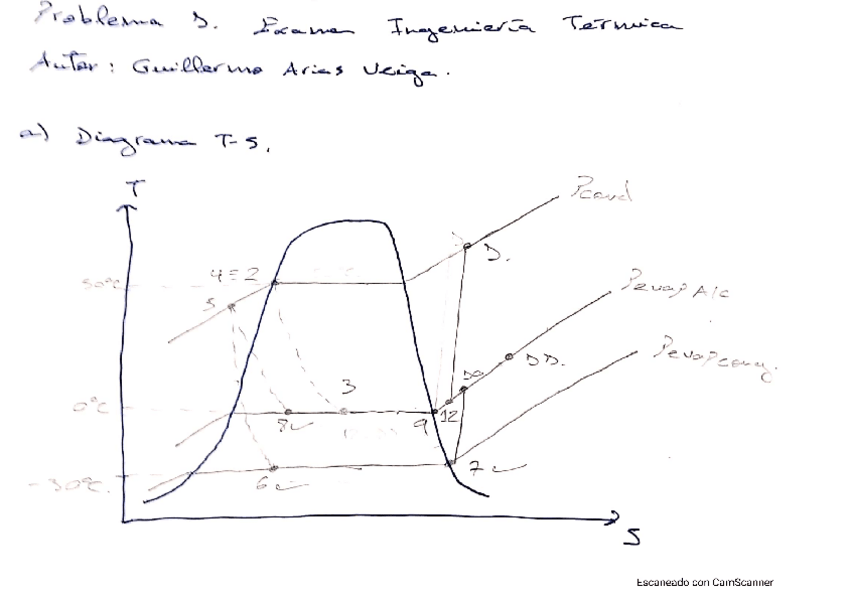 Problema 1. Examen Ingeniería Térmica
Autor: Guillermo Arias Veiga.
a) Diagrama T-S.
T
Pcond
4=2
1.
50ºC
5
Pevap A/C
11.
10
Pevap cong.
3
0ºC
8
9
12
7
-30ºC.
6
S
Escaneado con CamScanner